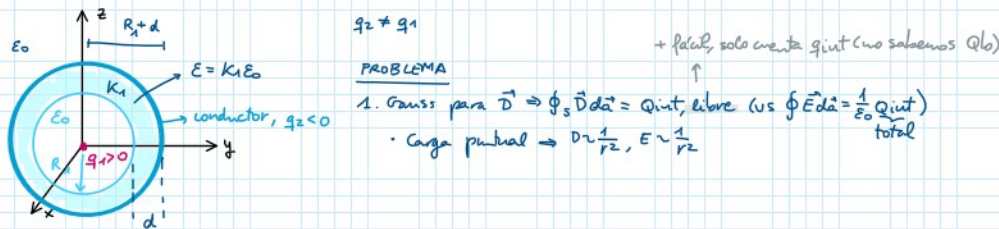 z
R₁+d
ε₀
K₁
ε = K₁ε₀
ε₀
conductor, q₂<0
q₁>0
R₁
y
x
d
q₂ ≠ q₁
+ fácil, solo cuenta qint (no sabemos Qb)
PROBLEMA
1. Gauss para D⃗ ⇒ ∮ₛ D⃗ da⃗ = Qint, libre (vs ∮ E⃗ da⃗ = 1/ε₀ Qint)
total
· Carga puntual ⇒ D ~ 1/r², E ~ 1/r²